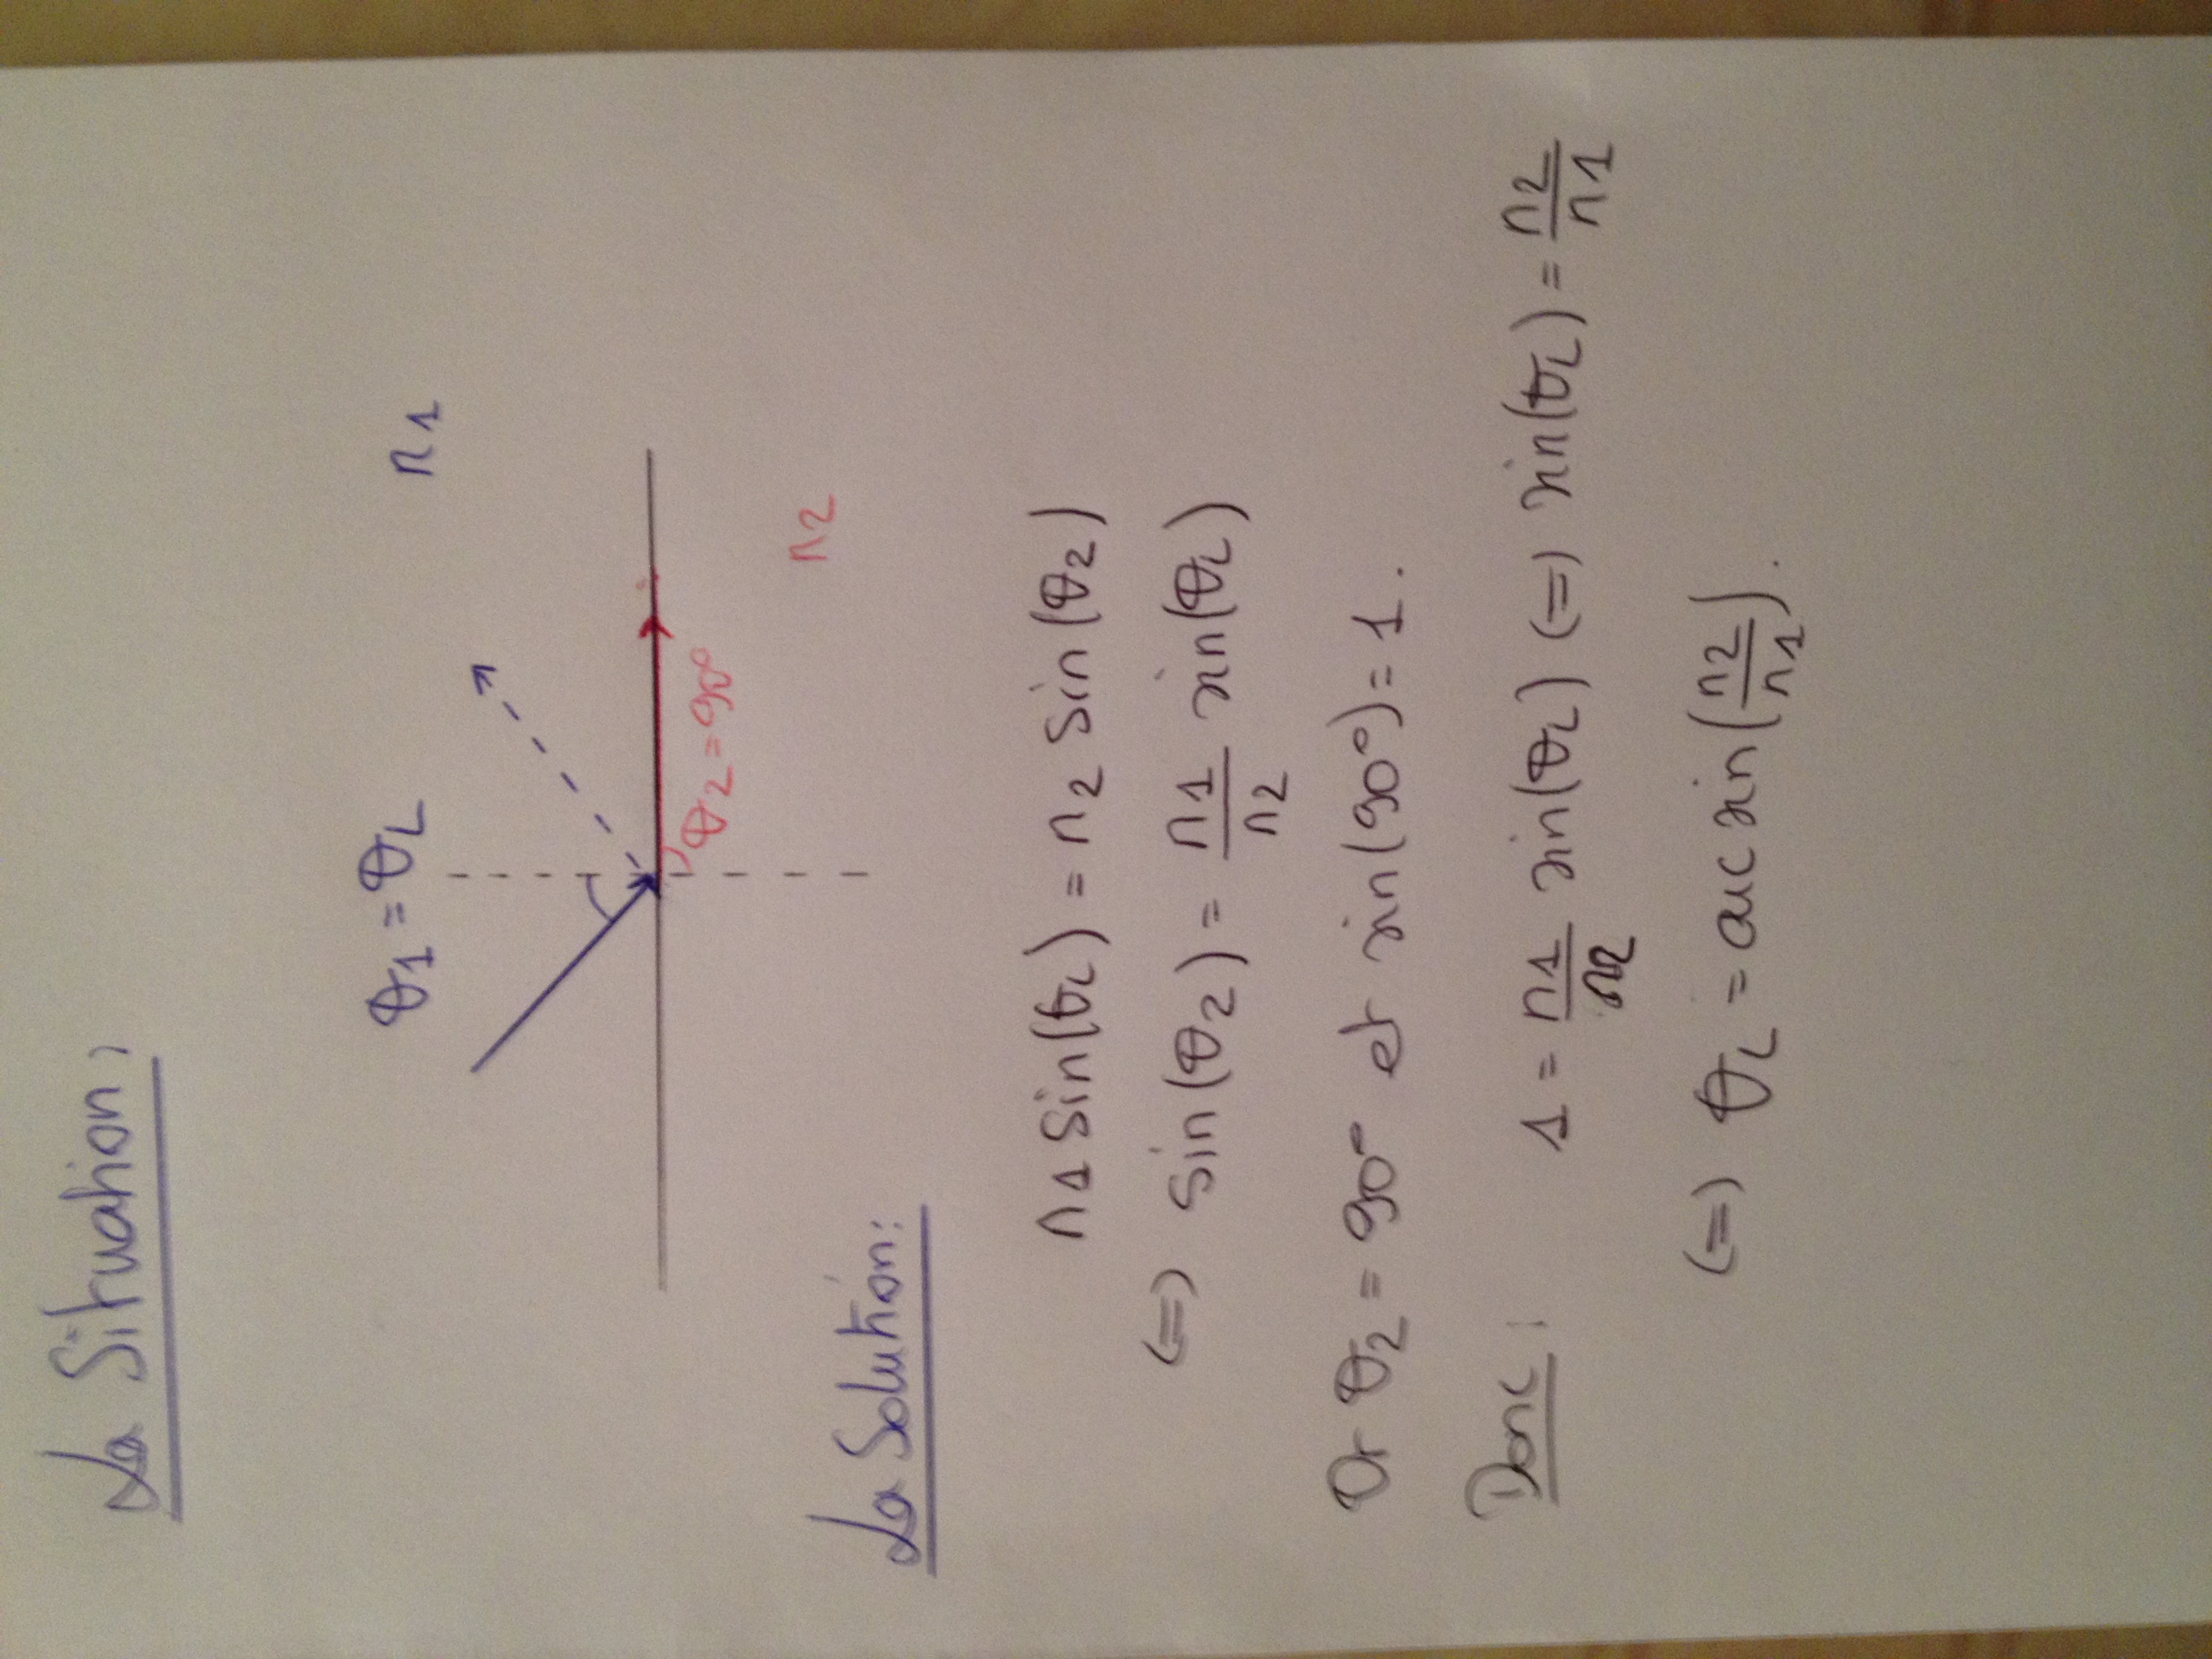 La Situation :
θ1 = θL
n1
θ2 = 90°
n2
La Solution :
n1 sin(θL) = n2 sin(θ2)
(=) sin(θ2) = n1/n2 sin(θL)
Or θ2 = 90° et sin(90°) = 1.
Donc : 1 = n1/n2 sin(θL) (=) sin(θL) = n2/n1
(=) θL = arc sin(n2/n1).